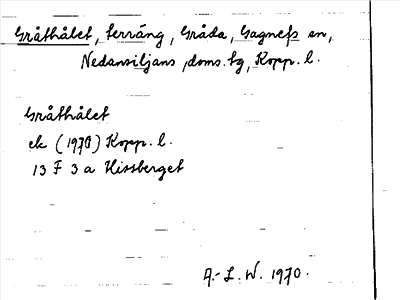 Gråthålet, terräng, Gråda, Gagnefs sn,
Nedansiljans doms.tg, Kopp. l.
Gråthålet
ek (1970) Kopp. l.
13 F 3 a Hissberget
A.-L. W. 1970.